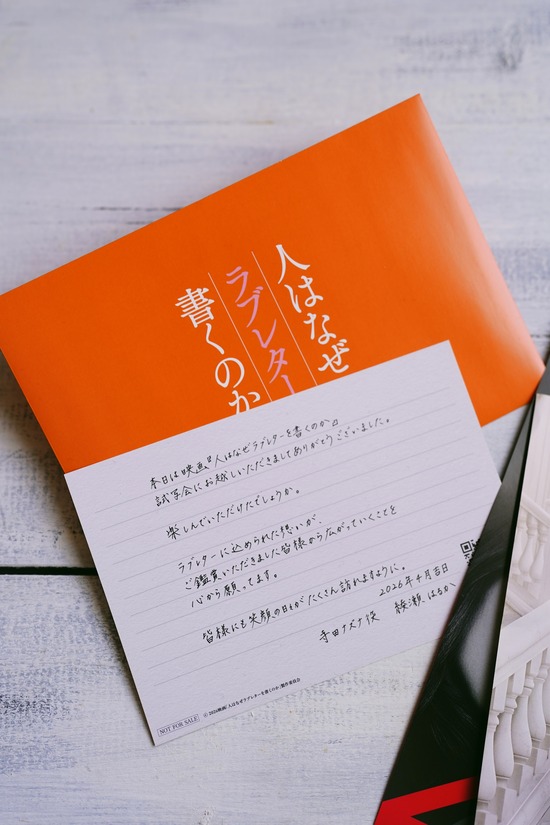 人はなぜ
ラブレター
書くのか
本日は映画『人はなぜラブレターを書くのか』
試写会にお越しいただきましてありがとうございました。
楽しんでいただけたでしょうか。
ラブレターに込められた想いが、
ご鑑賞いただきました皆様から広がっていくことを
心から願ってます。
皆様にも笑顔の日々がたくさん訪れますように。
2026年4月吉日
寺田ナズナ役 綾瀬はるか
NOT FOR SALE
© 2026映画「人はなぜラブレターを書くのか」製作委員会